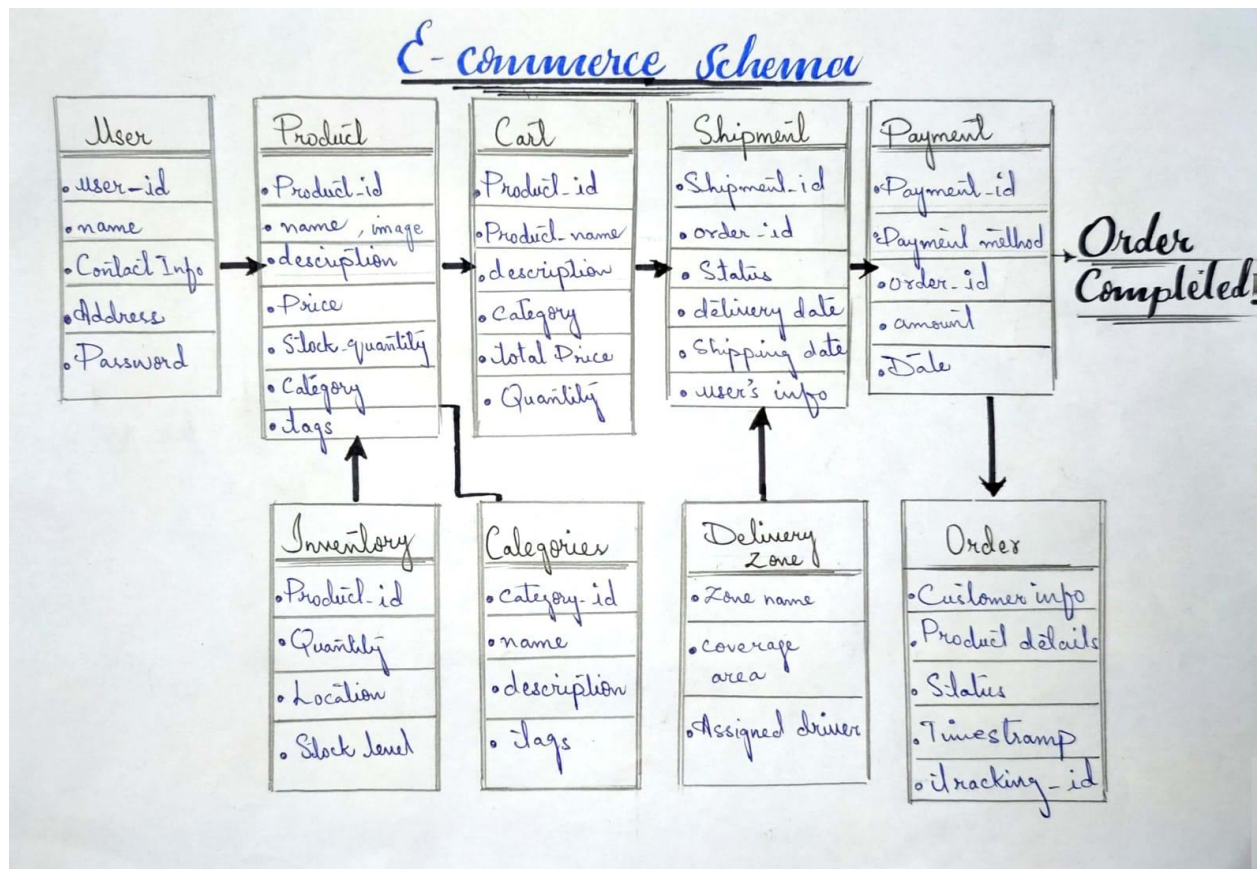 E-commerce Schema
User
user-id
name
Contact Info
Address
Password
Product
Product-id
name, image
description
Price
Stock-quantity
Category
tags
Cart
Product-id
Product-name
description
Category
total Price
Quantity
Shipment
Shipment-id
order-id
Status
delivery date
Shipping date
user's info
Payment
Payment-id
Payment method
order-id
amount
Date
Order
Completed!
Inventory
Product-id
Quantity
Location
Stock level
Categories
category-id
name
description
tags
Delivery
Zone
Zone name
coverage
area
Assigned driver
Order
Customer info
Product details
Status
Timestramp
tracking_id